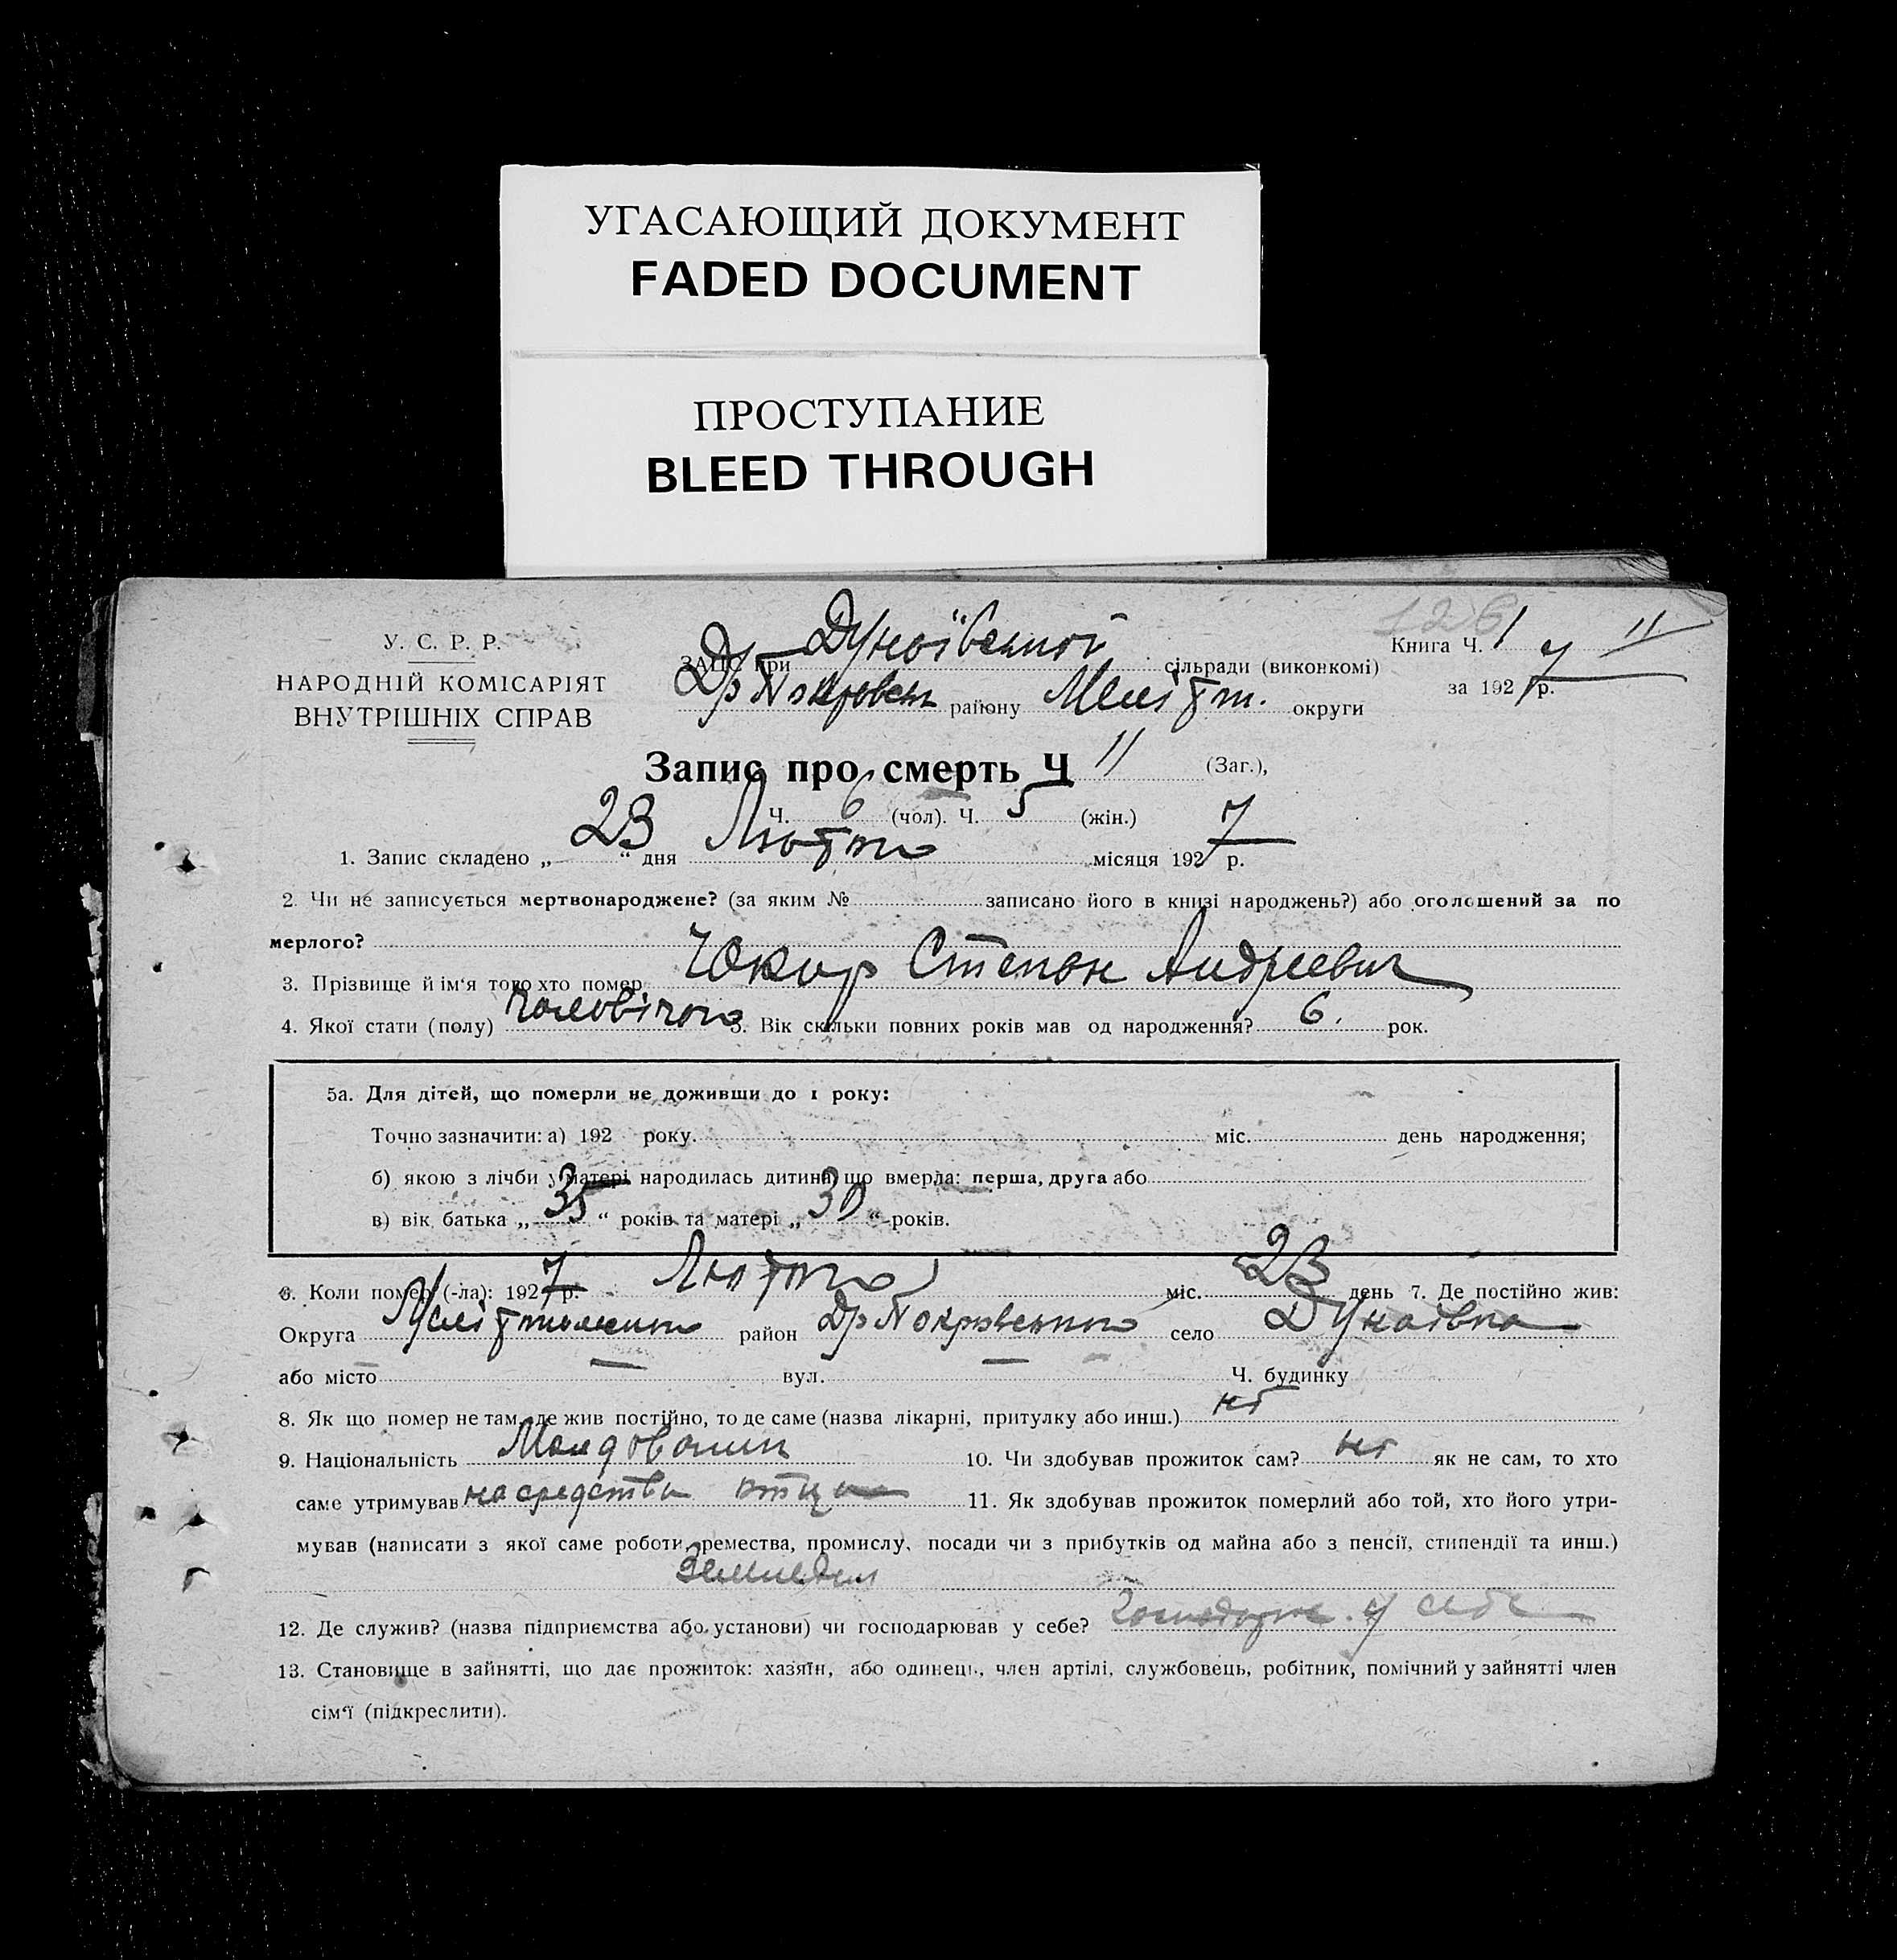 УГАСАЮЩИЙ ДОКУМЕНТ
FADED DOCUMENT
ПРОСТУПАНИЕ
BLEED THROUGH
126
У. С. Р. Р.
НАРОДНІЙ КОМІСАРІЯТ
ВНУТРІШНІХ СПРАВ
ЗАПС при Дунаївській сільради (виконкомі)
Др Покровськ району Меліт. округи
Книга Ч. 1 11
за 1927 р.
Запис про смерть Ч 11 (Заг.),
Ч. 6 (чол). Ч. 5 (жін.)
1. Запис складено „ 23 “ дня Лютого місяця 1927 р.
2. Чи не записується мертвонароджене? (за яким № записано його в книзі народжень?) або оголошений за по
мерлого?
3. Прізвище й ім'я того хто помер Степан Андреевич
4. Якої стати (полу) чоловічого 5. Вік скільки повних років мав од народження? 6. рок.
5а. Для дітей, що померли не доживши до 1 року:
Точно зазначити: а) 192 року. міс. день народження;
б) якою з лічби у матері народилась дитина, що вмерла: перша, друга або
в) вік батька „ 35 “ років та матері „ 30 “ років.
6. Коли помер (-ла): 1927 р. Лютого міс. 23 день 7. Де постійно жив:
Округа Мелітопольська район Др Покровського село Дунаївка
або місто — вул. — Ч. будинку
8. Як що помер не там, де жив постійно, то де саме (назва лікарні, притулку або инш.) ні
9. Національність Молдованин 10. Чи здобував прожиток сам? ні як не сам, то хто
саме утримував на средства отца 11. Як здобував прожиток померлий або той, хто його утри-
мував (написати з якої саме роботи, ремества, промислу, посади чи з прибутків од майна або з пенсії, стипендії та инш.)
12. Де служив? (назва підприємства або установи) чи господарював у себе? у себе
13. Становище в зайнятті, що дає прожиток: хазяїн, або одинець, член артілі, службовець, робітник, помічний у зайнятті член
сім'ї (підкреслити).